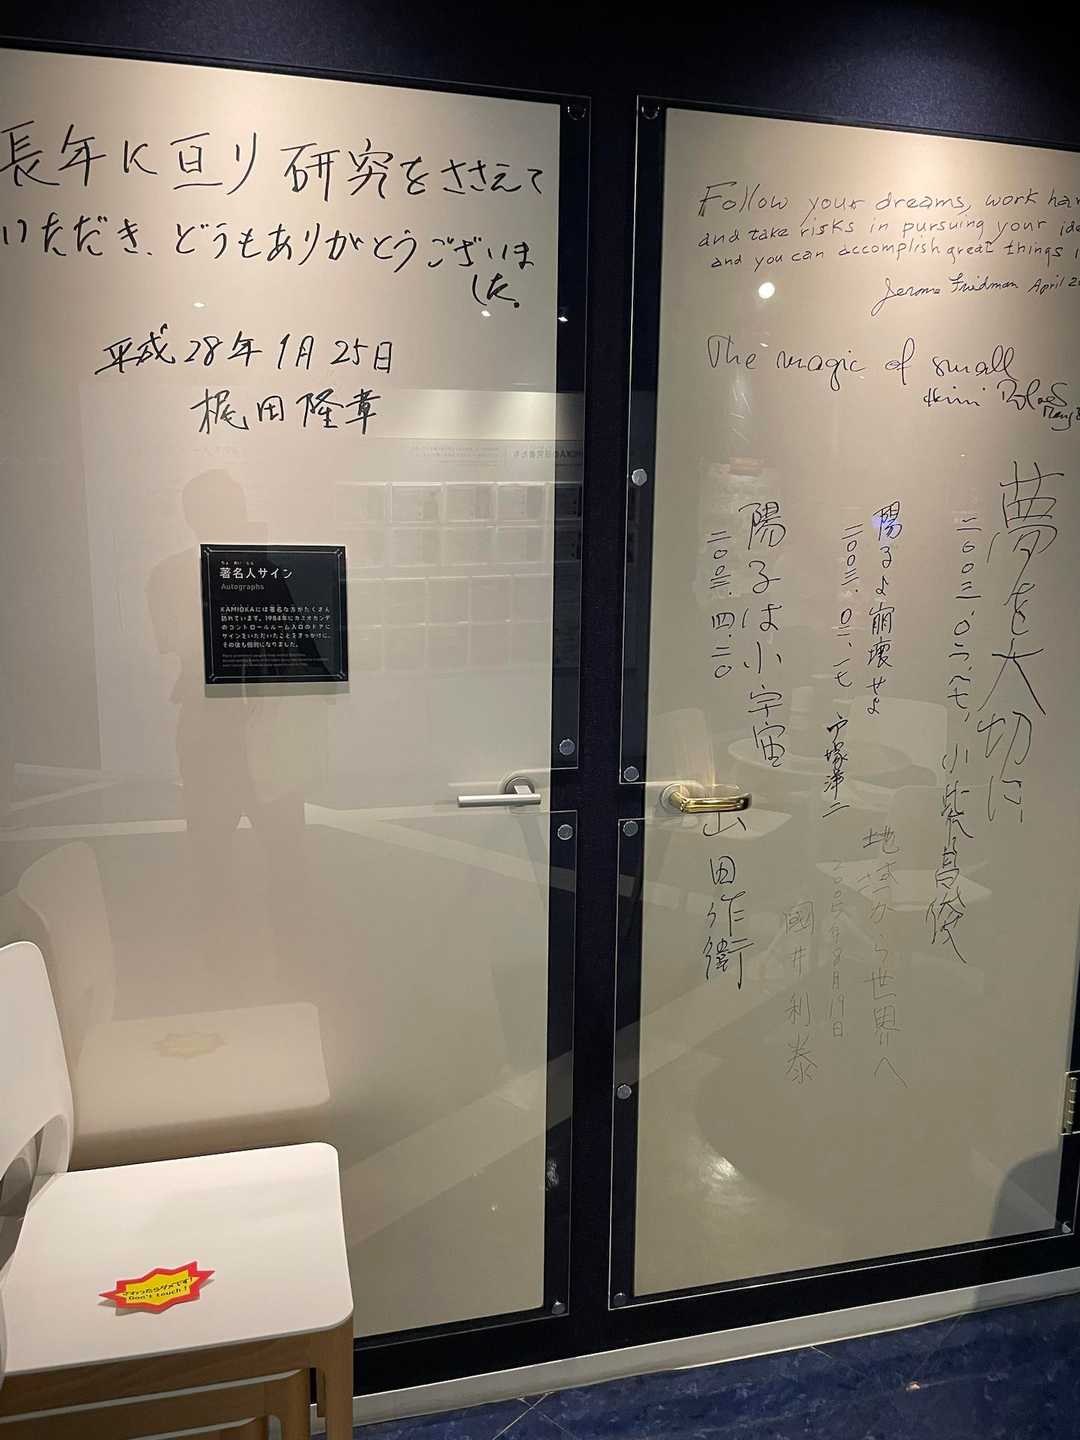 長年に亘り研究をささえて
いただき、どうもありがとうございま
した。
平成28年1月25日
梶田隆章
ちょ めい じん
著名人サイン
Autographs
KAMIOKAには著名な方がたくさん
訪れています。1984年にカミオカンデ
のコントロールルーム入口のドアに
サインをいただいたことをきっかけに、
その後も個別になりました。
さわったらダメです!
Don't touch!
Follow your dreams, work har
and take risks in pursuing your ide
and you can accomplish great things i
Jerome Friedman April 20
The magic of small
夢を大切に
二〇〇三、〇六、一七、小柴昌俊
陽子よ崩壊せよ
二〇〇三.〇六.一七 戸塚洋二
陽子は小宇宙
二〇〇三.四.二〇 山田作衛
地域から世界へ
二〇〇五年8月19日
國井利泰